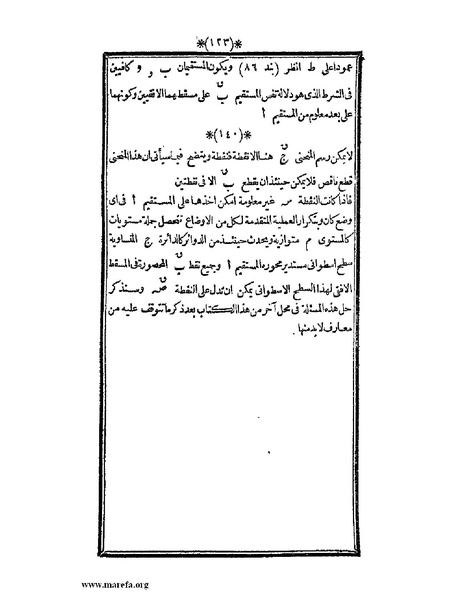 *(١٢٣)*
عمودا على ط انظر (بند ٨٦) ويكون المستقيمان ب و و كافيين
فى الشرط الذى هو دلالة نفس المستقيم ب على مسقطيهما الافقيين وكونهما
على بعد معلوم من المستقيم ا
*(١٤٠)*
لا يمكن رسم المنحنى ج هنا الا نقطة فنقطة ويتضح فيما سيأتى ان هذا المنحنى
قطع ناقص فلا يمكن حينئذ ان يقطع ب الا فى نقطتين
فاذا كانت النقطة س غير معلومة امكن اخذها على المستقيم ا فى اى
وضع كان وبتكرار العملية المتقدمة لكل من الاوضاع تحصل جملة مستويات
كالمستوى م متوازية ويحدث حينئذ من الدوائر كالدائرة ج المتساوية
سطح اسطوانى مستدير محوره المستقيم ا وجميع نقط ب المحصورة فى المسقط
الافقى لهذا السطح الاسطوانى يمكن ان تدل على النقطة ص وسنذكر
حل هذه المسئلة فى محل آخر من هذا الكتاب بعد ذكر ما تتوقف عليه من
معارف لا بد منها.
www.marefa.org